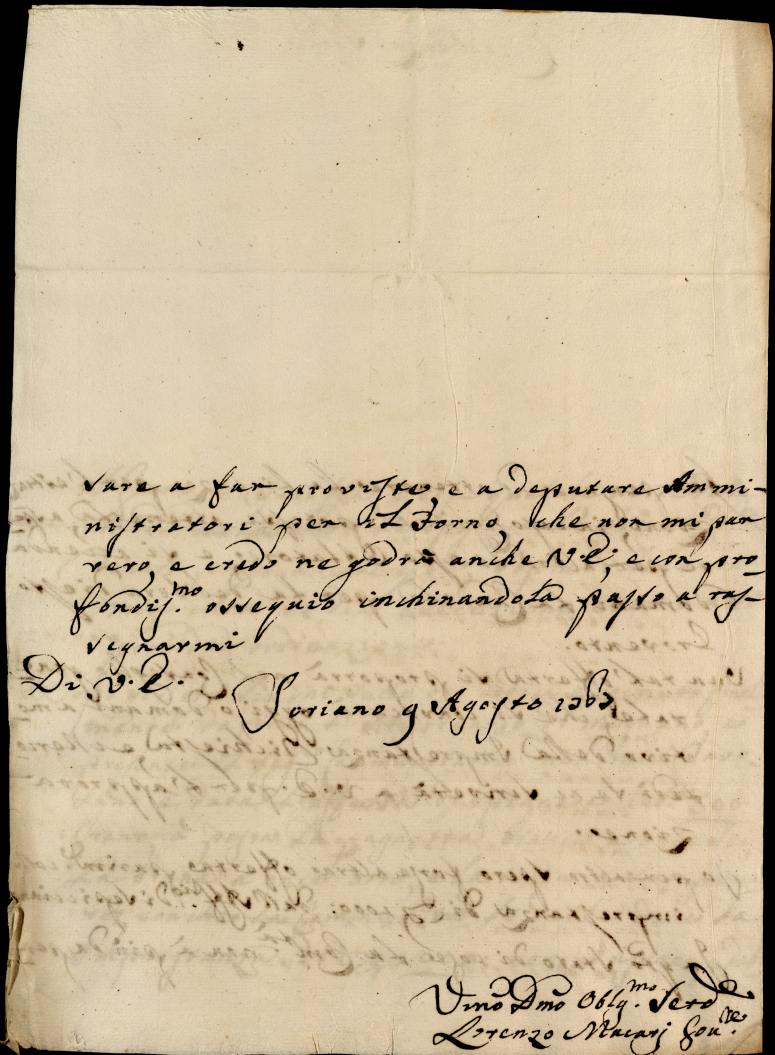 sare a far proviste, e a deputare Ammi-
nistratori per il Forno, che non mi par
vero, e credo ne godrà anche V.E., e con pro-
fondis.mo ossequio inchinandola passo a ras-
segnarmi
Di V.E.
Soriano 9 Agosto
Umo Dmo Oblg.mo Serd.e
Lorenzo Macarj